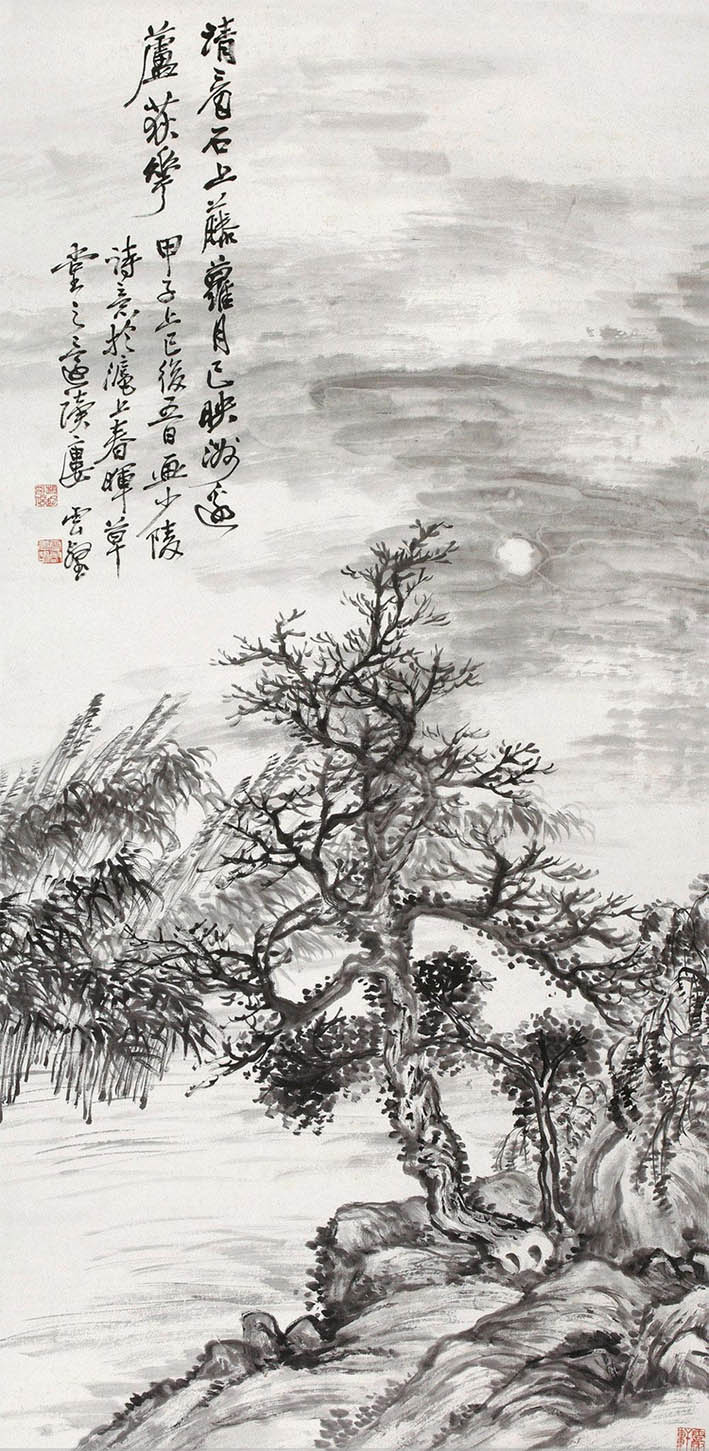 請看石上藤蘿月已映洲邊
蘆荻華
甲子上巳後五日画少陵
詩意於滬上春暉草
堂之還讀廔 雲壑